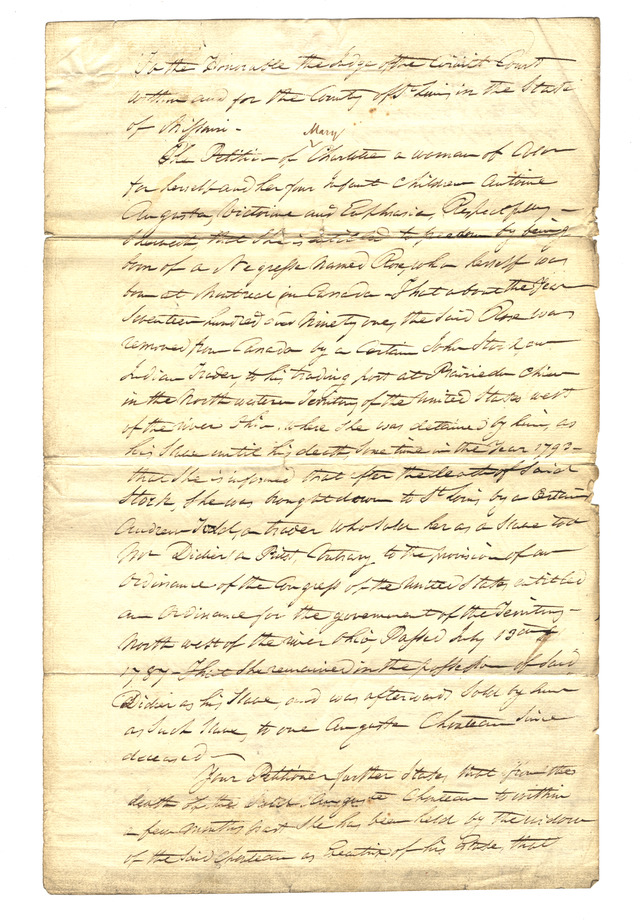 To the Honorable the Judge of the Circuit Court
within and for the County of St Louis, in the State
of Missouri -
Mary
The Petition of Charlotte a woman of Color
for herself and her four Infant Children Antoine
Auguste, Victoire and Euphrasia, Respectfully -
Sheweth, that She is entitled to freedom by being
born of a Negresse Named Rose, who herself was
born at Montreal in Canada - That about the Year
Seventeen hundred and Ninety one, the Said Rose was
removed from Canada by a Certain John Stock, an
Indian Trader, to his trading post at Prairie du Chien
in the North western Territory of the United States west
of the river Ohio - where She was detained by him, as
his Slave until his death, Some time in the Year 1793 -
that She is informed that after the death of Said
Stock, She was brought down to St Louis, by a Certain
Andrew Todd, a trader who Sold her as a Slave to
Mr Didier, a Priest, Contrary to the provision of an
Ordinance of the Congress of the United States, entitled
an Ordinance for the government of the Territory -
North west of the river Ohio, Passed July 13
1787 - That She remained in the possession of Said
Didier as his Slave, and was afterwards Sold by him
as Such Slave, to one Auguste Chouteau Since
deceased -
Your Petitioner further States, that from the
death of the Said Auguste Chouteau to within
a few months past She has been held by the widow
of the Said Chouteau as of his Estate, that